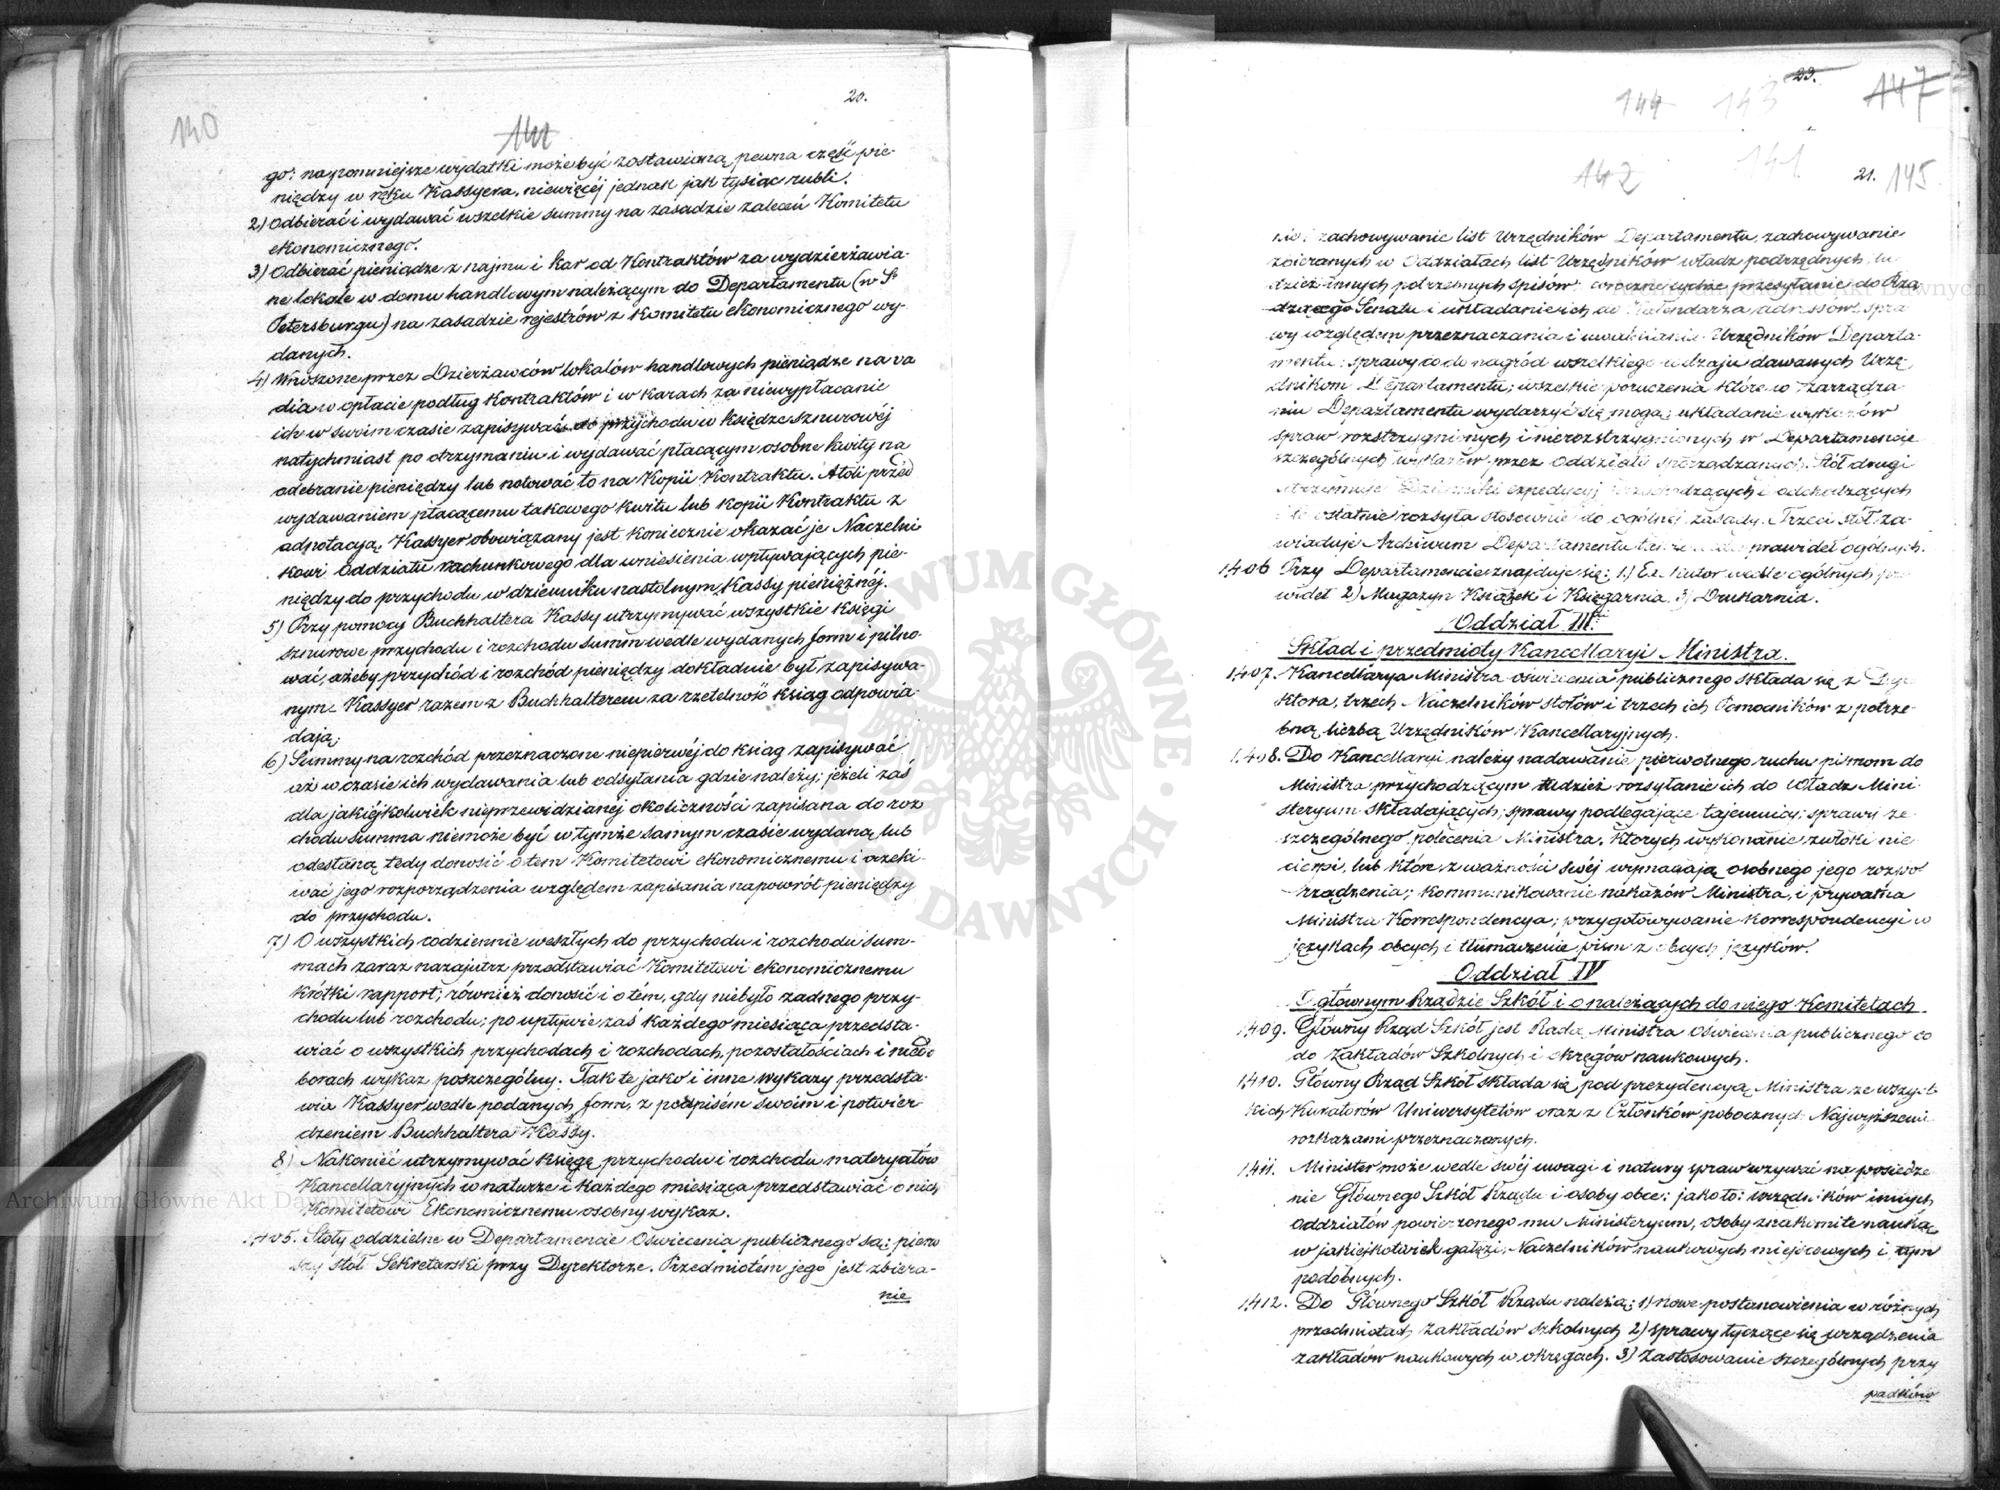 20.
140
141
go: na pomniejsze wydatki może być zostawioną pewna część pie-
niędzy w ręku Kassyera, niewięcéj jednak jak tysiąc rubli.
2) Odbierać i wydawać wszelkie summy na zasadzie zaleceń Komitetu
ekonomicznego.
3) Odbierać pieniądze z najmu i kar od Kontraktów za wydzierżawia-
ne lokale w domu handlowym należącym do Departamentu (w S
Petersburgu) na zasadzie rejestrów z Komitetu ekonomicznego wy-
danych.
4) Wnoszone przez Dzierżawców lokalów handlowych pieniądze na va
dia w opłacie podług Kontraktów i w karach za niewypłacanie
ich w swoim czasie zapisywać do przychodu w księdze sznurowéj
natychmiast po otrzymaniu i wydawać płacącym osobne kwity na
odebranie pieniędzy lub notować to na Kopii Kontraktu. Atoli przed
wydawaniem płacącemu takowego kwitu lub kopii Kontraktu z
adnotacyą, Kassyer obowiązany jest koniecznie okazać je Naczelni-
kowi Oddziału rachunkowego dla wniesienia wpływających pie-
niędzy do przychodu w dzienniku nastolnym Kassy pieniężnéj.
5) Przy pomocy Buchhaltera Kassy utrzymywać wszystkie księgi
sznurowe przychodu i rozchodu summ wedle wydanych form i pilno-
wać, ażeby przychód i rozchód pieniędzy dokładnie był zapisywa-
nym. Kassyer razem z Buchhalterem za rzetelność ksiąg odpowia-
dają.
6) Summy na rozchód przeznaczone niepierwéj do ksiąg zapisywać
aż w czasie ich wydawania lub odsyłania gdzie należy; jeżeli zaś
dla jakiéjkolwiek nieprzewidzianéj okoliczności zapisana do roz
chodu summa niemoże być w tymże samym czasie wydaną lub
odesłaną, tedy donosić o tem Komitetowi ekonomicznemu i oczeki-
wać jego rozporządzenia względem zapisania napowrót pieniędzy
do przychodu.
7) O wszystkich codziennie weszłych do przychodu i rozchodu sum-
mach zaraz nazajutrz przedstawiać Komitetowi ekonomicznemu
krótki rapport; również donosić i o tém, gdy niebyło żadnego przy-
chodu lub rozchodu; po upływie zaś każdego miesiąca przedsta-
wiać o wszystkich przychodach i rozchodach, pozostałościach i niedo
borach wykaz poszczególny. Tak te jako i inne wykazy przedsta-
wia Kassyer wedle podanych form, z podpisém swoim i potwier-
dzeniem Buchhaltera Kassy.
8) Nakoniec utrzymywać księgę przychodu i rozchodu materyałów
Kancellaryjnych w naturze i każdego miesiąca przedstawiać o nich
Komitetowi Ekonomicznemu osobny wykaz.
1,405. Stoły oddzielne w Departamencie Oświecenia publicznego są: pierw
szy stół Sekretarski przy Dyrektorze. Przedmiotém jego jest zbiera-
nie
23.
144 143 147
142 141 21. 145
nie i zachowywanie list Urzędników Departamentu, zachowywanie
zbieranych w Oddziałach list Urzędników władz podrzędnych, tu
dzież innych potrzebnych spisów: coroczne tychże przesyłanie do Rzą
dzącego Senatu i układanie ich do Kalendarza adressów, spra
wy względem przeznaczania i uwalniania Urzędników Departa-
mentu; sprawy co do nagród wszelkiego rodzaju dawanych Urzę
dnikom Departamentu; wszelkie poruczenia które w Zarządza
niu Departamentu wydarzyć się mogą; układanie wykazów
spraw rozstrzygnionych i nierozstrzygnionych w Departamencie
szczególnych wykazów przez Oddziały sporządzanych. Stół drugi
utrzymuje Dzienniki expedycyj przychodzących i odchodzących
i te ostatnie rozsyła stosownie do ogólnéj zasady. Trzeci stół za-
wiaduje Archiwum Departamentu prawideł ogólnych.
1,406 Przy Departamencie znajduje się: 1.) Exekutor wedle ogólnych pra
wideł 2) Magazyn Książek i Księgarnia, 3) Drukarnia.
Oddział III.
Skład i przedmioty Kancellaryi Ministra.
1,407. Kancellarya Ministra oświecenia publicznego składa się z Dyre
ktora, trzech Naczelników stołów i trzech ich Pomocników z potrze-
bną liczbą Urzędników Kancellaryjnych.
1,408. Do Kancellaryi należy nadawanie pierwotnego ruchu pismom do
Ministra przychodzącym tudzież rozsyłanie ich do Władz Mini-
steryum składających; sprawy podlegające tajemnicy; sprawy ze
szczególnego polecenia Ministra, których wykonanie zwłoki nie
cierpi, lub które z ważności swéj wymagają osobnego jego rozpo
rządzenia; kommunikowanie nakazów Ministra, i prywatna
Ministra Korrespondencya; przygotowywanie korrespondencyi w
językach obcych i tłumaczenie pism z obcych języków.
Oddział IV
O głównym Rządzie Szkół i o należących do niego Komitetach.
1,409. Główny Rząd Szkół jest Radą Ministra Oświecenia publicznego co
do Zakładów Szkolnych i okręgów naukowych.
1,410. Główny Rząd Szkół składa się pod prezydencyą Ministra ze wszyst
kich Kuratorów Uniwersytetów oraz z Członków pobocznych Najwyższemi
rozkazami przeznaczonych.
1,411. Minister może wedle swéj uwagi i natury spraw wzywać na posiedze
nie Głównego Szkół Rządu i osoby obce: jakoto: urzędników innych
oddziałów powierzonego mu Ministeryum, osoby znakomite nauką
w jakiejkolwiek gałęzi, Naczelników naukowych miejscowych i tym
podobnych.
1,412. Do Głównego Szkół Rządu należą: 1) nowe postanowienia w różnych
przedmiotach Zakładów szkolnych 2) sprawy tyczące się urządzenia
zakładów naukowych w okręgach. 3) Zastosowanie szczególnych przy
padków
Archiwum Główne Akt Dawnych
Archiwum Główne Akt Dawnych
ARCHIWUM GŁÓWNE AKT DAWNYCH